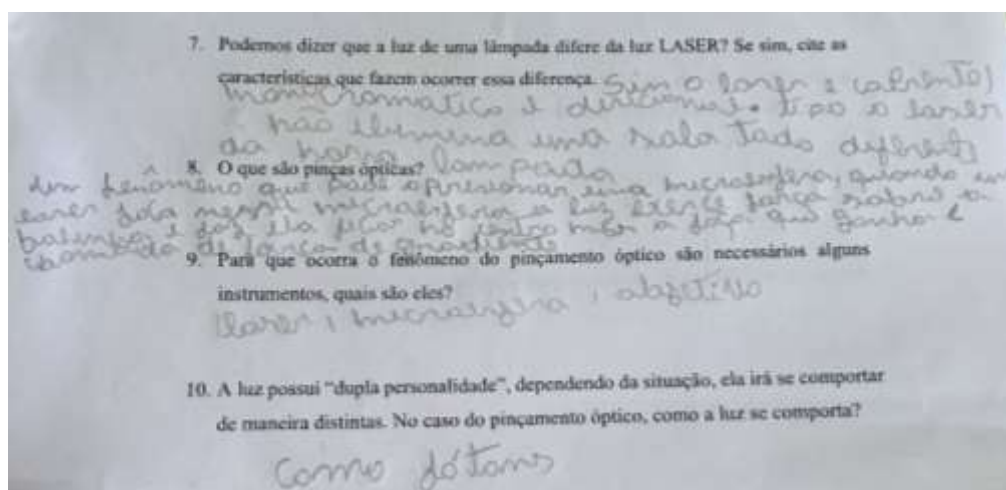 7. Podemos dizer que a luz de uma lâmpada difere da luz LASER? Se sim, cite as
características que fazem ocorrer essa diferença. Sim o laser e
monocromatico e direcional. Tipo o laser
não ilumina uma sala tado diferente
da lampada
8. O que são pinças ópticas?
um fenômeno que pode apresionar uma microesfera, quando um
laser foca nessa microesfera a luz exerce força sobre a
e faz ela ficar no centro a força que ganha e
chamada de força de gradiente
9. Para que ocorra o fenômeno do pinçamento óptico são necessários alguns
instrumentos, quais são eles?
laser, microesfera, objetivo
10. A luz possui “dupla personalidade”, dependendo da situação, ela irá se comportar
de maneira distintas. No caso do pinçamento óptico, como a luz se comporta?
Como fótons